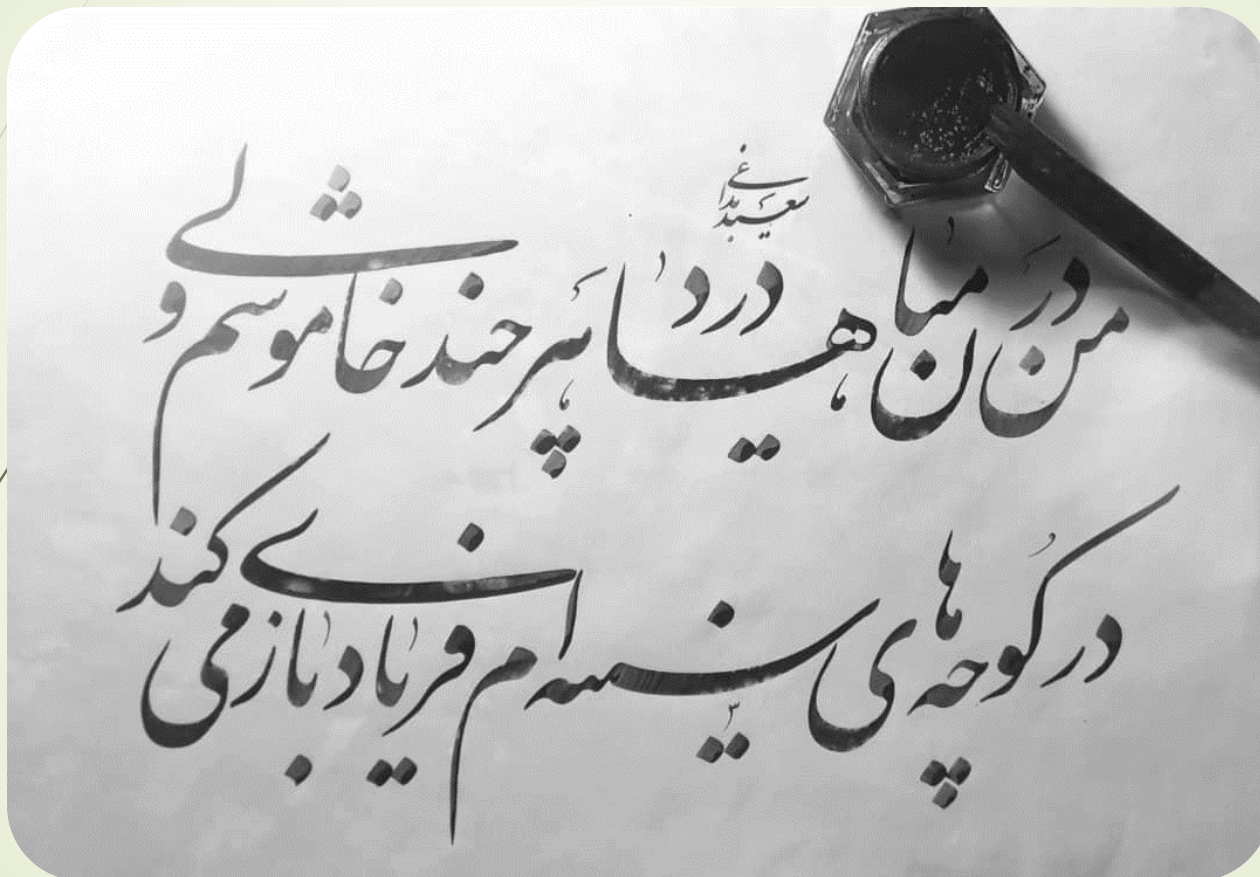 سعید بداغی
من در میان دردها هرچند خاموشم ولی
در کوچه های سینه ام فریاد بازی می کند